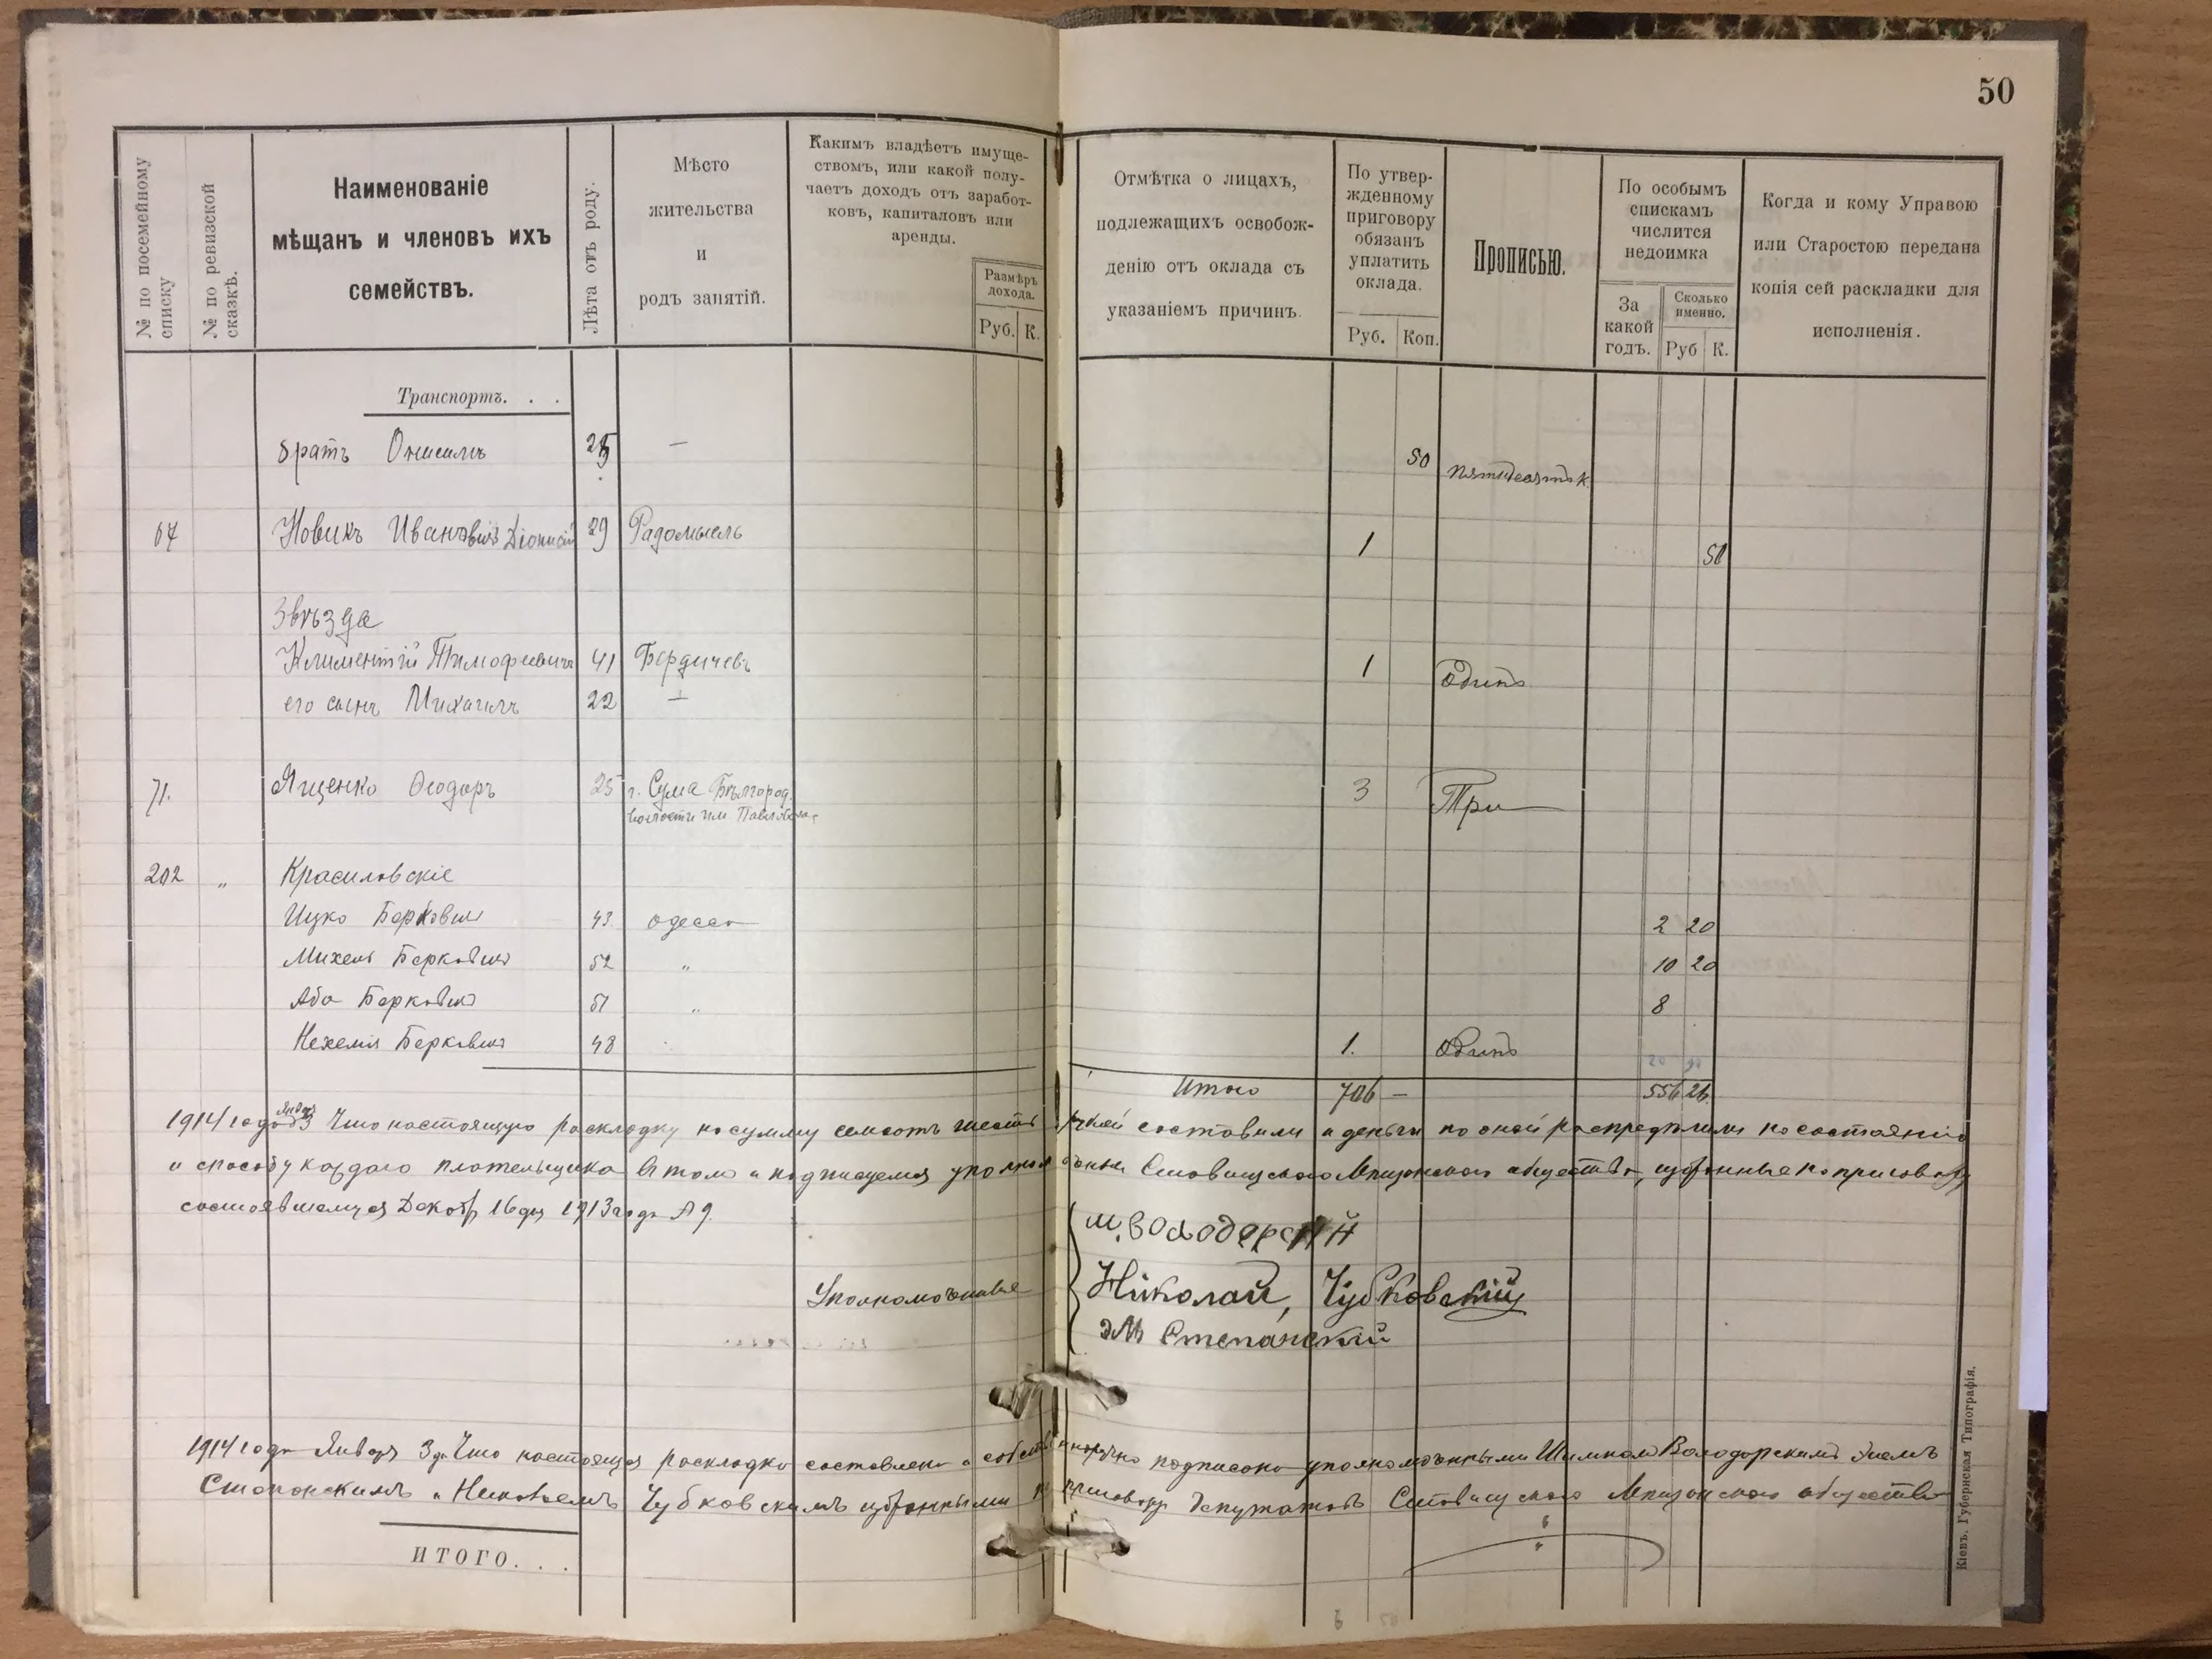 50
№ по посемейному списку
№ по ревизской сказкѣ.
Наименованіе
мѣщанъ и членовъ ихъ
семействъ.
Лѣта отъ роду.
Мѣсто
жительства
и
родъ занятій.
Какимъ владѣетъ имуще-
ствомъ, или какой полу-
чаетъ доходъ отъ заработ-
ковъ, капиталовъ или
аренды.
Размѣръ
дохода.
Руб. К.
Отмѣтка о лицахъ,
подлежащихъ освобож-
денію отъ оклада съ
указаніемъ причинъ.
По утвер-
жденному
приговору
обязанъ
уплатить
оклада.
Руб. Коп.
Прописью.
По особымъ
спискамъ
числится
недоимка
За
какой
годъ.
Сколько
именно.
Руб К.
Когда и кому Управою
или Старостою передана
копія сей раскладки для
исполненія.
Транспортъ. . .
братъ Онисимъ — 50
Новикъ Ивановичъ Діонисій 29 Радомысль 1
Звѣзда
Климентій Тимофеевичъ 41 Бердичевъ 1 Одинъ
его сынъ Михаилъ 22
71. Ященко Ѳеодоръ 25 г. Сума Бѣлгород. 3 Три
волости им.
202 „ Красиловскіе
Ицко Берковичъ 43 Одесса 2 20
Михель Берковичъ 52 „ 10 20
Аба Берковичъ 51 „ 8
Нехемія Берковичъ 48 1. Одинъ
20
Итого 706 — 556 26
1914 года Янвъ 3 Что настоящую раскладку на сумму семсотъ шесть рублей составили и деньги по оной распредѣлили по состоянію
и способу каждаго плательщика въ томъ и подписуемся Ставищскаго Мѣщанскаго общества, избранные по приговору
состоявшемуся Декабр 16 дня 1913 года № 9.
Уполномоченные
Ш. Володарский
Ніколай, Чубковскій
Эль Степанскій
1914 года Январ 3 д. Что настоящая раскладка составлена и собственноручно подписана уполномоченными Шимномъ Володарскимъ Элемъ
Степанскимъ и Николаемъ Чубковскимъ избранными по приговору депутатовъ Ставищскаго Мѣщанскаго общества
ИТОГО. . .
Кіевъ. Губернская Типографія.